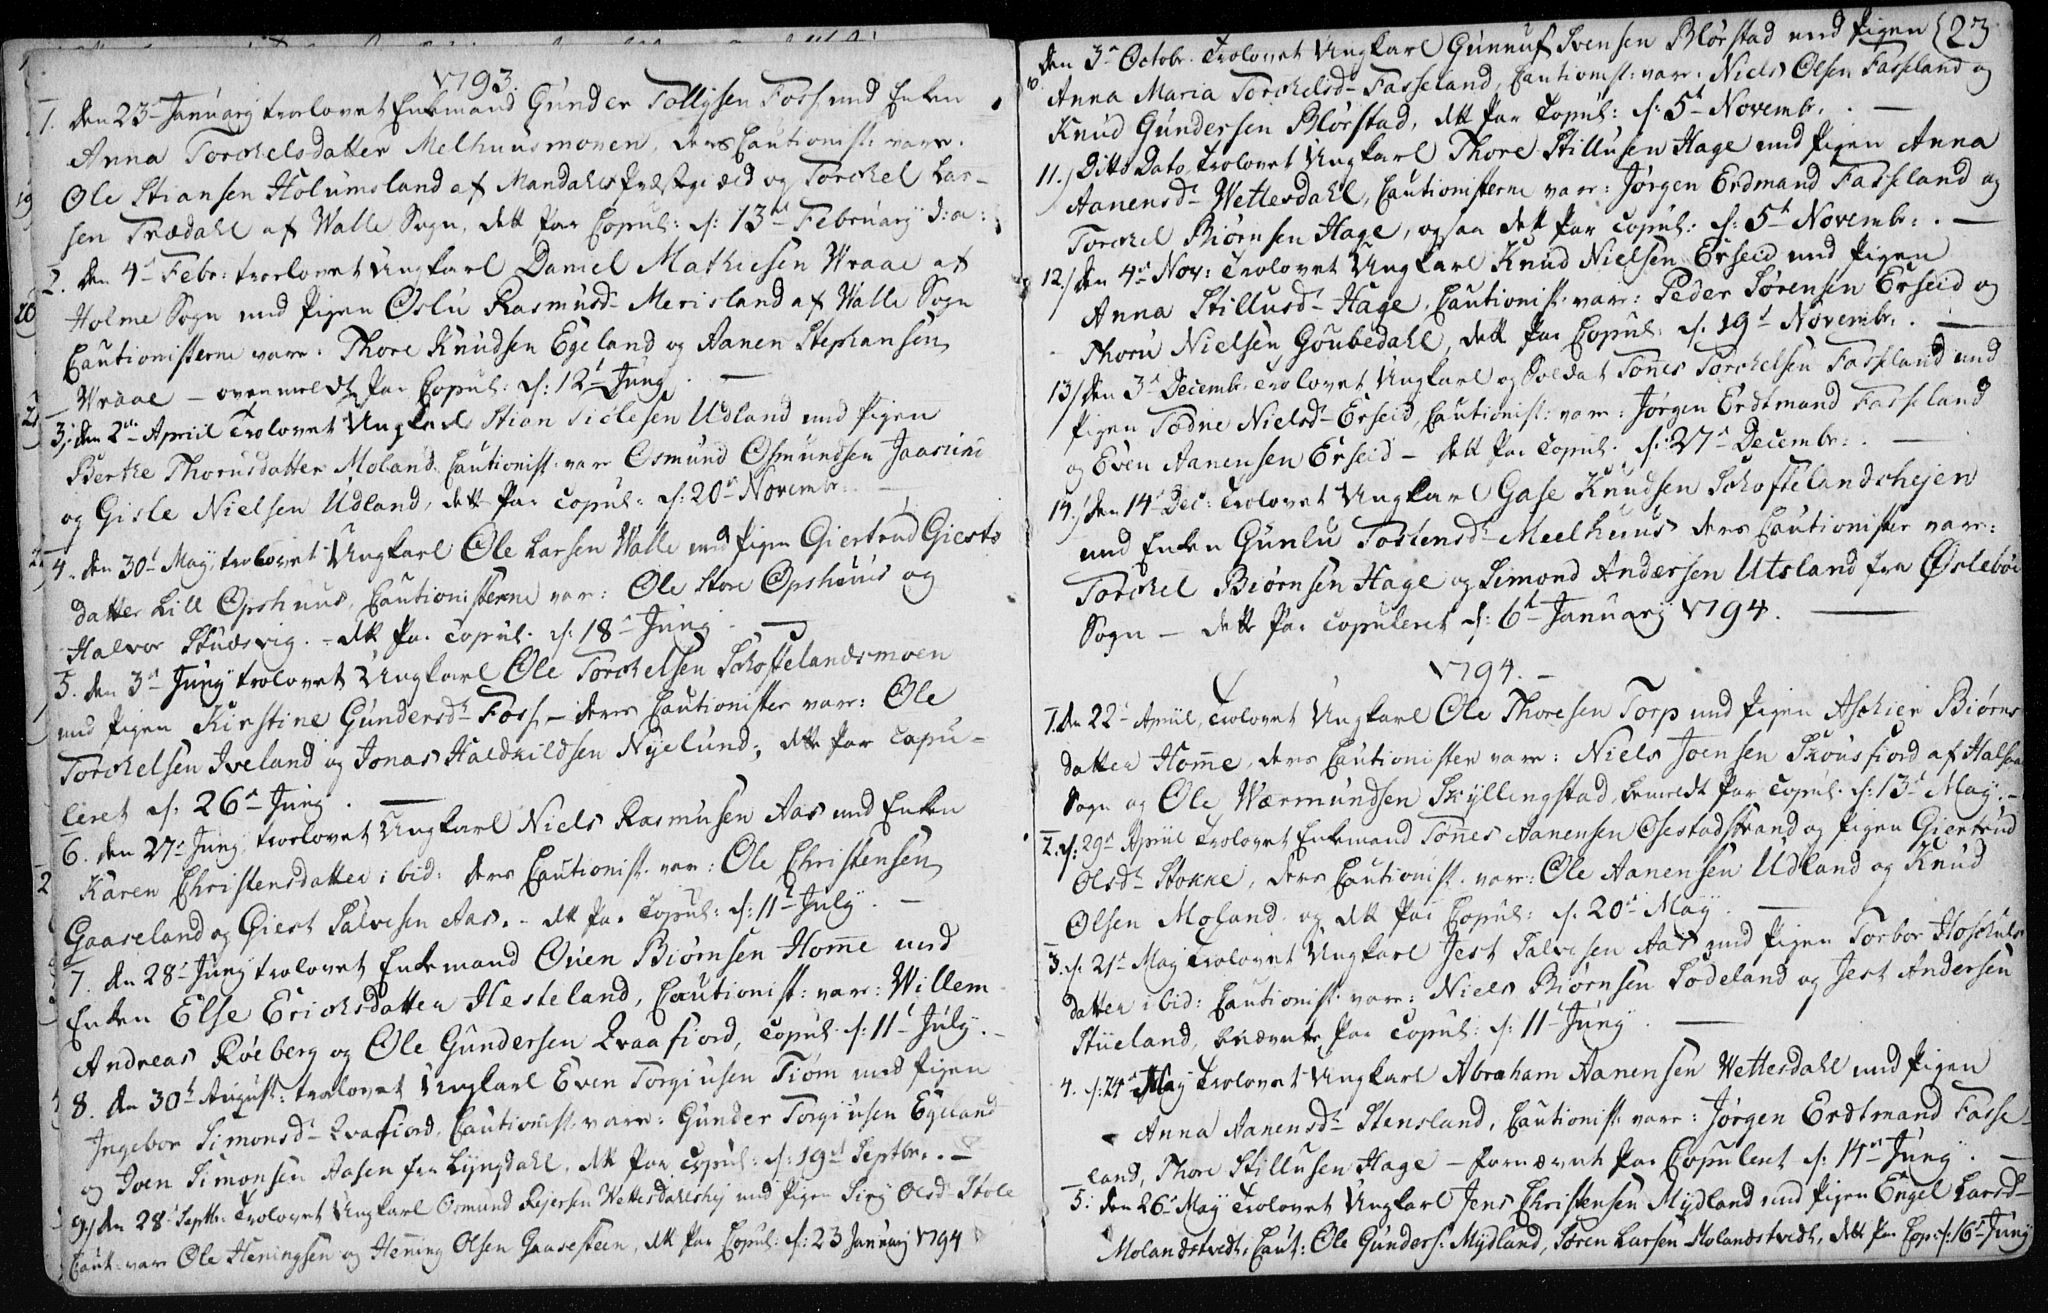 1793.
1. den 23 Januarij trorlovet Enkemand Gunder Tollysen Foss med Enken
Anna Torchelsdatter Melhuusmonen, ders Cautionist: vare.
Ole Stiansen Holumsland af Mandahls Præstegield og Torchel Lar-
sen Trædahl af Walle Sogn, dette Par Copul: d: 13de Februarij d:a:
2. den 4de Febr: trorlovet Ungkarl Daniel Mathiesen Wraae af
Holme Sogn med Pigen Oslu Rasmusd: Merisland af Walle Sogn
Cautionisterne vare: Thore Knudsen Egeland og Aanen Stephansen
Wraae – ovenmeldte Par Copul: d: 12t Junij. –
3. den 2den Apriil Trolovet Ungkarl Stian Siclesen Udland med Pigen
Berthe Thorusdatter Moland Cautionist: var Osmund Osmundsen Jaasund
og Gisle Nielsen Udland, dette Par Copul: d: 20de Novembr.
4. den 30t May, trolovet Ungkarl Ole Larsen Walle med Pigen Giertrud Giests
datter Lill Opshuus, Cautionisterne var: Ole Store Opshuus og
Halvor Studsvig. – dette Par Copul. d: 18de Junij –
5. den 3de Junij trolovet Ungkarl Ole Torchelsen Schoffelandsmoen
med Pigen Kirstine Gundersdr Foss, – ders Cautionister vare: Ole
Torchelsen Iveland og Jonas Haldkildsen Nyelund; dette Par Copu-
leret d: 26de Junij. –
6. den 27de Junij trorlovet Ungkarl Niels Rasmusen Aas med Enken
Karen Christensdatter ibid: ders Cautionist. var: Ole Christensen
Gaaseland og Giest Salvesen Aas. – dette Par Copul: d: 11t July. –
7. den 28t Junij trolovet Enkemand Ouen Biørnsen Home med
Enken Else Erichsdatter Hesteland, Cautionist: vare: Willem
Andreas Røeberg og Ole Gundersen Qvaafiord, Copul. d: 11t July. –
8. den 30t August: trolovet Ungkarl Even Torgiusen Tiøm med Pigen
Ingebor Simonsd: Qvafiord, Cautionist: vare: Gunder Torgiusen Egeland
og Joen Simonsen Aasen fra Lyngdahl, dette Par Copul: d: 19de Septbr. –
9. / den 28t Septbr. Trolovet Ungkarl Osmund Rejersen Wettesdahlshej med Pigen Siry Olsdr Stole
Caut: vare Ole Heningsen og Hening Olsen Gaasesteen, dette Par Copul: d: 23 Januarij 1794
23
10. den 3de Octobr. Trolovet Ungkarl Gunnuf Svensen Blørstad med Pigen
Anna Maria Torchelsd: Fasseland, Cautionist: vare: Niels Olsen Fasseland og
Knud Gundersen Blørstad, dette Par Copul: d: 5t Novembr. –
11. / Ditto Dato Trolovet Ungkarl Thore Stillusen Hage med Pigen Anna
Aanensdr Wettesdahl, Cautionisterne vare: Jørgen Erdmand Fasseland og
Torchel Biørnsen Hage, ogsaa dette Par Copul: d: 5t Novembr: –
12. / den 4de Nov: Trolovet Ungkarl Knud Nielsen Erseid med Pigen
Anna Stillusdr Hage, Cautionist: vare: Peder Sørensen Erseid og
Thoru Nielsen Goubedahl, dette Par Copul: d: 19t Novembr. –
13 / den 3de Decembr. Trolovet Ungkarl og Soldat Tønes Torchelsen Fasseland med
Pigen Tødne Nielsdr Erseid, Cautionist: vare: Jørgen Erdtmand Fasseland
og Even Aanensen Erseid – dette Par Copul. d: 27de Decembr: –
14. / den 14de Dec: Trolovet Ungkarl Gase Knudsen Schoftelandshejen
med Enken Gunlu Tostensdr Meelhuus ders Cautionister vare:
Torchel Biørnsen Hage og Simond Andersen Utsland fra Øslebøe
Sogn – dette Par Copuleret d: 6t Januarij 1794. –
1794. –
1. den 22de Apriil, Trolovet Ungkarl Ole Thoresen Torp med Pigen Aschier Biørns
datter Home, ders Cautionister vare: Niels Joensen Skousfiord af Halsaa
Sogn og Ole Wærmundsen Skyllingstad, bemeldte Par Copul. d: 13de May. –
2. d: 29de Apriil Trolovet Enkemand Tønes Aanensen Osestadstrand og Pigen Giertrud
Olsdr Stokke, ders Cautionist. vare: Ole Aanensen Udland og Knud
Olsen Moland og dette Par Copul: d. 20de May. –
3. d. 21de May Trolovet Ungkarl Jest Salvesen Aas med Pigen Torbor Hoschuls
datter ibid: Cautionist: vare: Niels Biørnsen Sodeland og Jest Andersen
Stueland, bnævnte Par Copul: d: 11t Junij. –
4. d: 24de May Trolovet Ungkarl Abraham Aanensen Wettesdahl med Pigen
Anna Aanensdr Stensland, Cautionist: vare: Jørgen Erdtmand Fasse-
land, Thore Stillusen Hage – fornævnte Par Copuleret d: 14de Junij. –
5. den 26de May Trolovet Ungkarl Jens Christensen Mydland med Pigen Engel Larsd-
Molandstvedt, Caut: Ole Gunders: Mydland, Søren Larsen Molandstvedt, dette Par Cop: d: 16de Junij